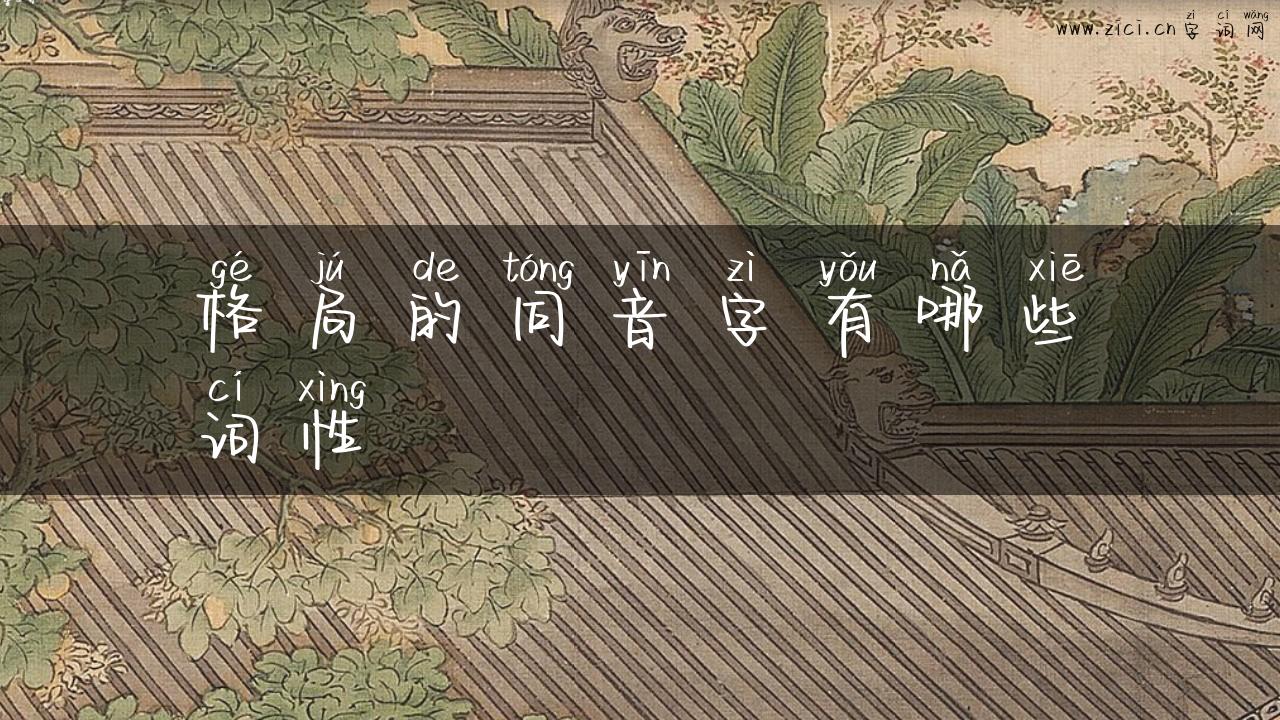 zì cí wǎng
www.zici.cn 字词网
gé jú de tóng yīn zì yǒu nǎ xiē
格局的同音字有哪些
cí xìng
词性